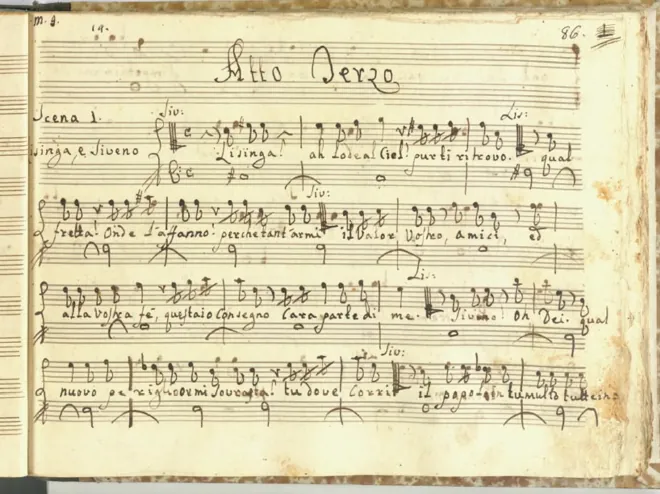 m. g.
19.
86.
Atto Terzo
Scena 1.
Siv:
Lis:
singa, e Siveno
Lisinga! ah lode al Ciel! pur ti ritrovo. qual
Siv:
fretta! Onde l'affanno! perche tant'armi il Valor Vostro, amici, ed
Lis:
alla Vostra fè, questa io Consegno Cara parte di me. Siveno! Oh Dei. qual
Siv:
nuovo periglio or mi Sovrasta! tu dove Corri il popolo in tumulto tutte in